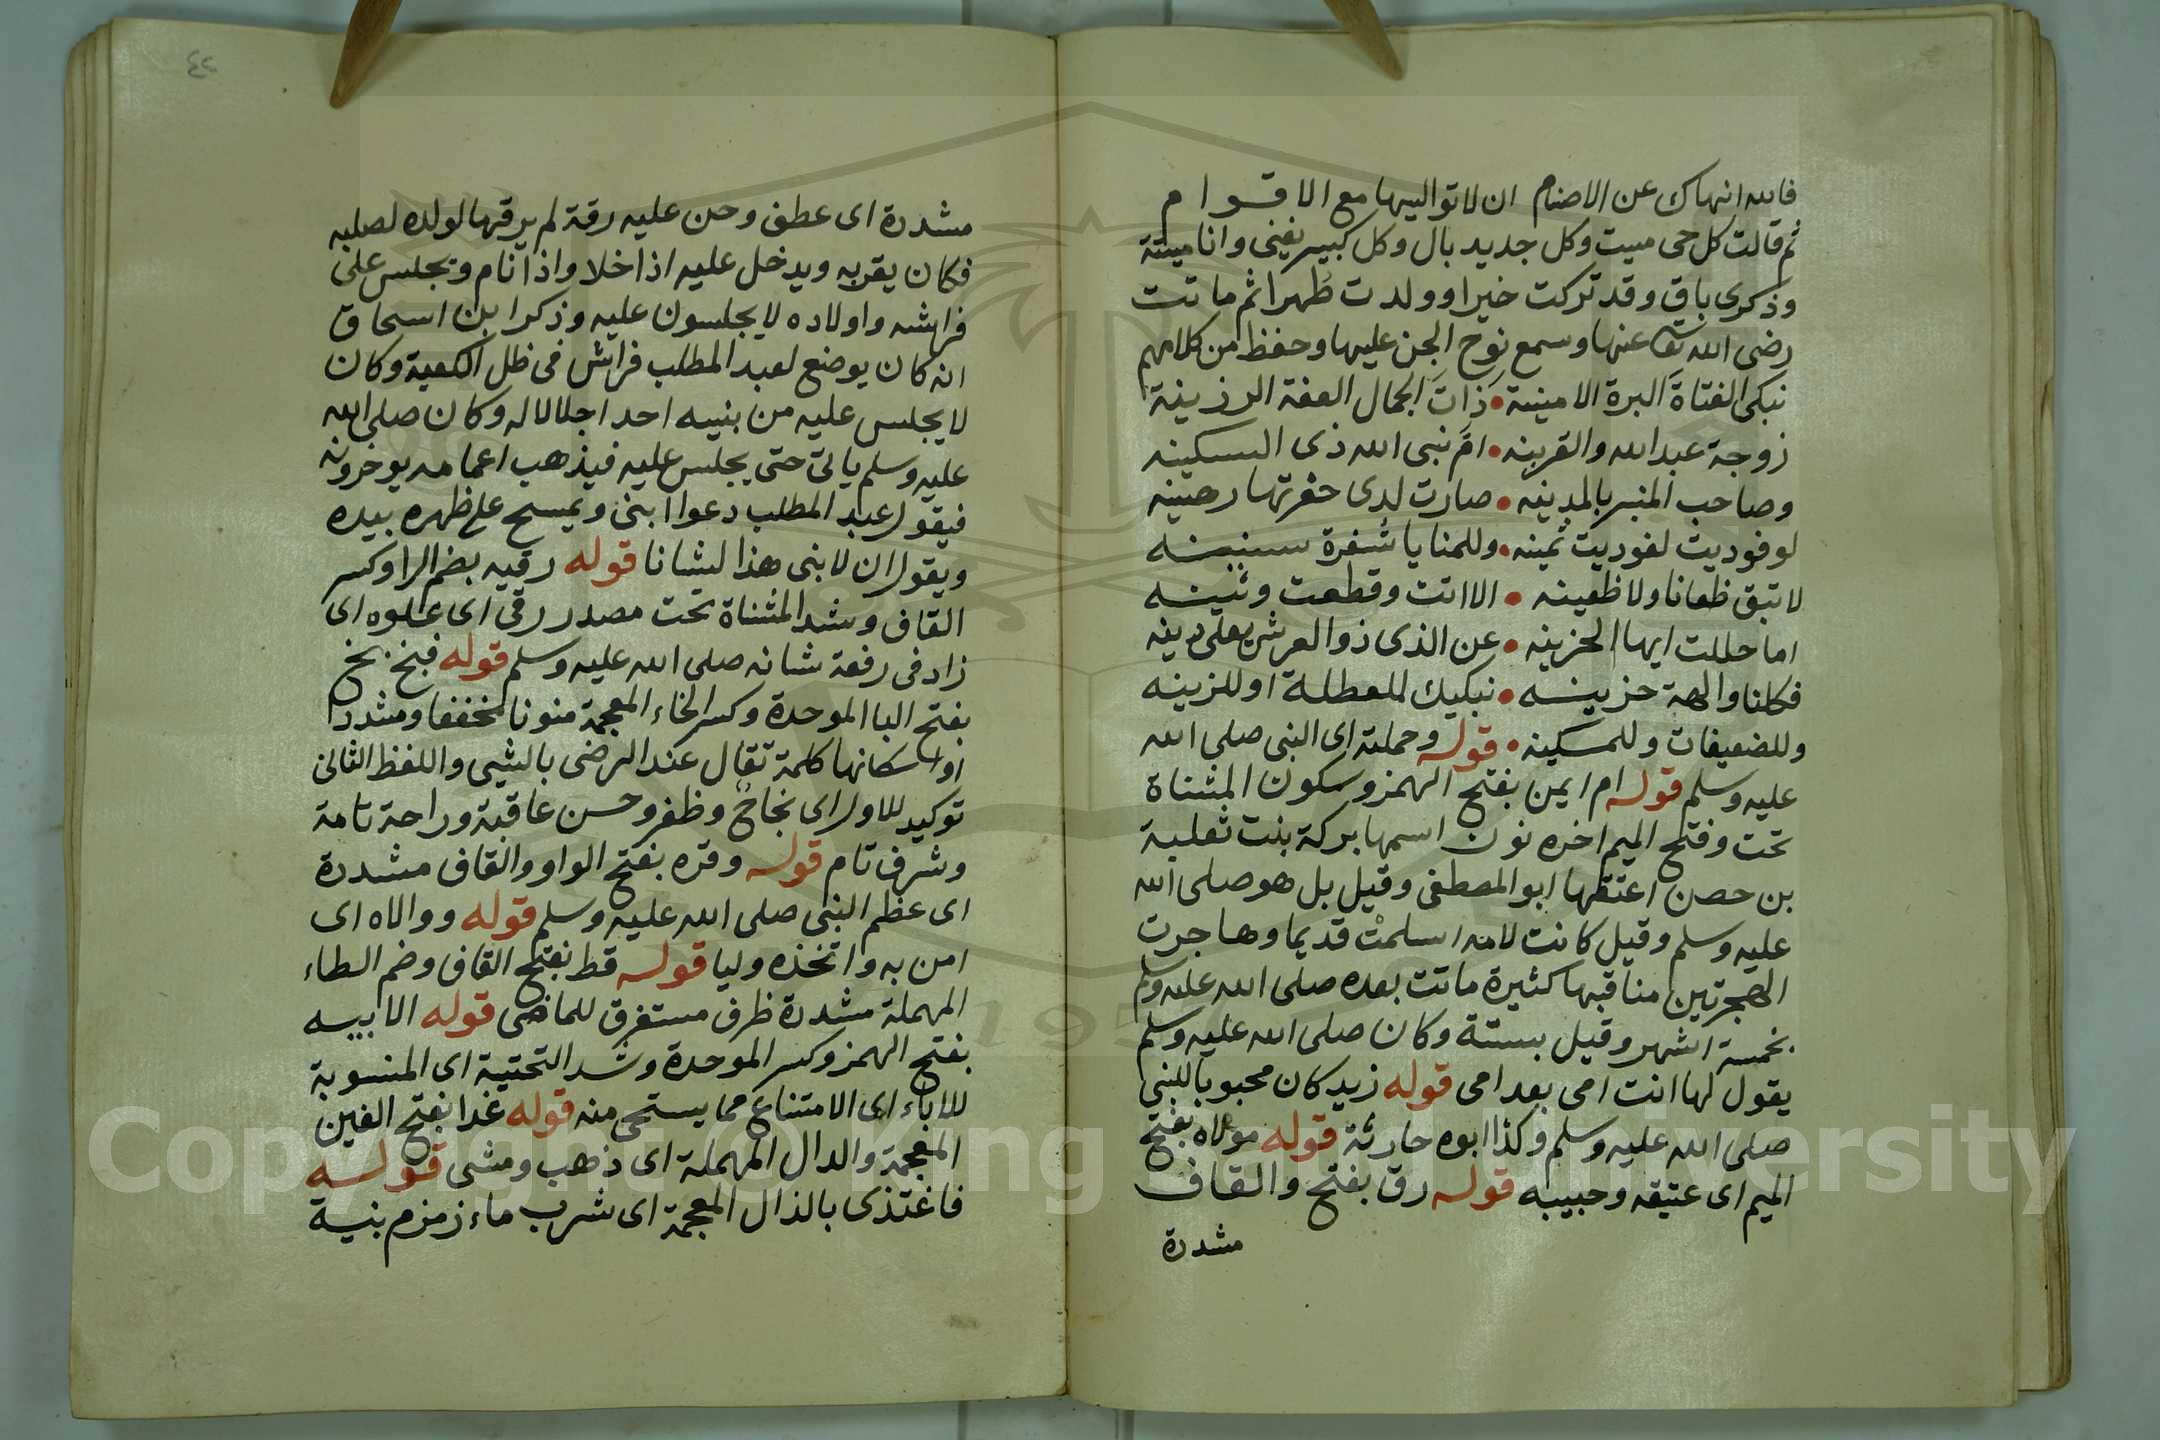 فالله انهاك عن الاصنام ان لا تواليها مع الاقوام
ثم قالت كل حى ميت وكل جديد بال وكل كبير يفنى وانا ميتة
وذكرى باق وقد تركت خيرا وولدت طهرا ثم ماتت
رضى الله تعا عنها وسمع نوح الجن عليها وحفظ من كلامهم
نبكى الفتاة البرة الامينة • ذات الجمال العفة الرزينة
زوجة عبد الله والقرينه • ام نبى الله ذى السكينه
وصاحب المنبر بالمدينه • صارت لدى حفرتها رهينه
لو فوديت لفوديت ثمينه • وللمنايا شفرة سنينه
لا تبق ظعانا ولا ظعينه • الا اتت وقطعت وتينه
اما حللت ايها الحزينه • عن الذى ذو العرش يعلى دينه
فكلنا والهة حزينه • نبكيك للعطلة او للزينه
وللضعيفات وللمسكينه • قوله وحملته اى النبى صلى الله
عليه وسلم قوله ام ايمن بفتح الهمز وسكون المثناة
تحت وفتح الميم اخره نون اسمها بركة بنت ثعلبة
بن حصن اعتقها ابو المصطفى وقيل بل هو صلى الله
عليه وسلم وقيل كانت لامه اسلمت قديما وهاجرت
الهجرتين مناقبها كثيرة ماتت بعده صلى الله عليه وسلم
بخمسة اشهر وقيل بستة وكان صلى الله عليه وسلم
يقول لها انت امى بعد امى قوله زيد كان محبوبا للنبى
صلى الله عليه وسلم وكذا ابوه حارثة قوله مولاه بفتح
الميم اى عتيقه وحبيبه قوله رق بفتح والقاف
مشددة
٤٢
مشددة اى عطف وحن عليه رقة لم يرقها لولده لصلبه
فكان يقربه ويدخل عليه اذا خلا واذا نام ويجلس على
فراشه واولاده لا يجلسون عليه وذكر ابن اسحاق
انه كان يوضع لعبد المطلب فراش فى ظل الكعبة وكان
لا يجلس عليه من بنيه احد اجلالا له وكان صلى الله
عليه وسلم ياتى حتى يجلس عليه فيذهب اعمامه يوخرونه
فيقول عبد المطلب دعوا ابنى ويمسح على ظهره بيده
ويقول ان لابنى هذا لشانا قوله رقيه بضم الرا وكسر
القاف وشد المثناة تحت مصدر رقى اى علوه اى
زاد فى رفعة شانه صلى الله عليه وسلم قوله فبخ بخ
بفتح البا الموحدة وكسر الخاء المعجمة منونا مخففا ومشددا
او اسكانها كلمة تقال عند الرضى بالشيى واللفظ الثانى
توكيد للاول اى نجاح وظفر وحسن عاقبة وراحة تامة
وشرف تام قوله وقره بفتح الواو والقاف مشددة
اى عظم النبى صلى الله عليه وسلم قوله ووالاه اى
امن به واتخذه وليا قوله قط بفتح القاف وضم الطاء
المهملة مشددة ظرف مستغرق للماضى قوله الابيه
بفتح الهمز وكسر الموحدة وشد التحتية اى المنسوبة
للاباء اى الامتناع مما يستحى منه قوله غدا بفتح الغين
المعجمة والدال المهملة اى ذهب ومشى قوله
فاغتذى بالذال المعجمة اى شرب ماء زمزم بنية
Copyright © King Saud University